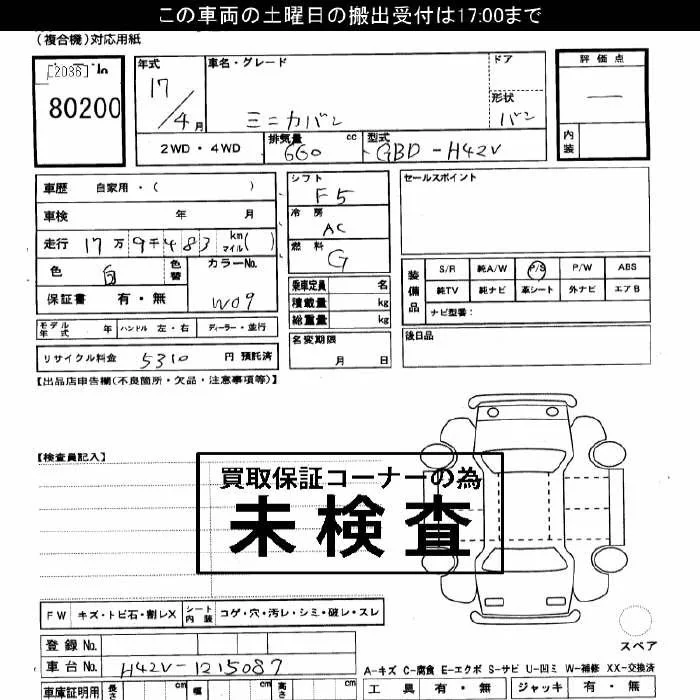 この車両の土曜日の搬出受付は17:00まで
(複合機)対応用紙
[2036]
80200
年式 車名・グレード ドア 評価点
17/4月 ミニカバン 形状 バン —
2WD・4WD 排気量 660 cc 型式 GBD-H42V 内装
車歴 自家用・( )
車検 年 月
走行 17万9千483 km マイル( )
色 白 色替 カラーNo. W09
保証書 有・無
モデル年式 年 ハンドル 左・右 ディーラー・並行
リサイクル料金 5310 円 預託済
シフト F5
冷房 AC
燃料 G
乗車定員 名
積載量 kg
総重量 kg
名変期限
月 日
セールスポイント
装備品 S/R 純A/W P/S P/W ABS
純TV 純ナビ 革シート 外ナビ エアB
ナビ型番:
後日品
【出品店申告欄(不良箇所・欠品・注意事項等)】
【検査員記入】
買取保証コーナーの為
未検査
FW キズ・トビ石・割レX シート内装 コゲ・穴・汚レ・シミ・破レ・スレ
登録No.
車台No. H42V-1215087
車庫証明用 長さ cm 幅 cm 高さ cm
スペア
A-キズ C-腐食 E-エクボ S-サビ U-凹ミ W-補修 XX-交換済
工具 有・無 ジャッキ 有・無